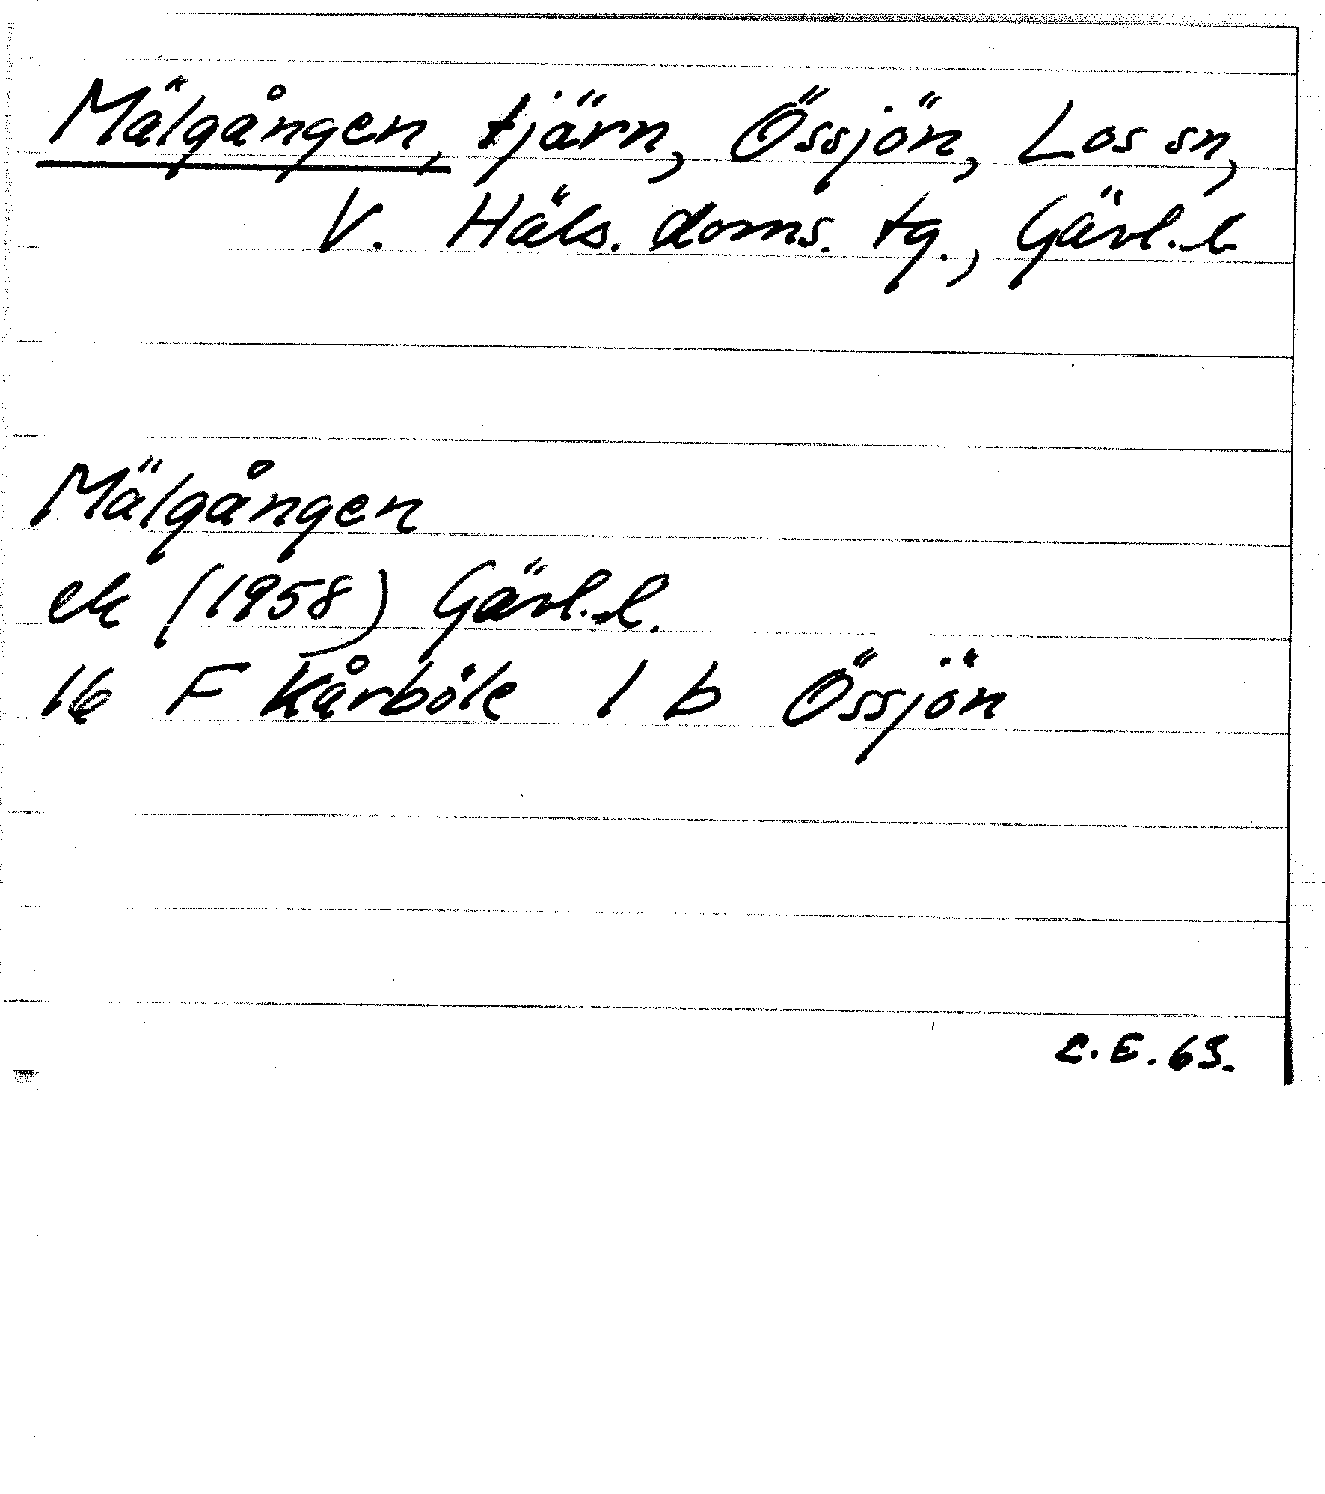 Mälgången, tjärn, Össjön, Los sn,
V. Häls. doms. tg., Gävl. l.
Mälgången
ek (1958) Gävl. l.
16 F Kårböle 1 b Össjön
C. E. 65.